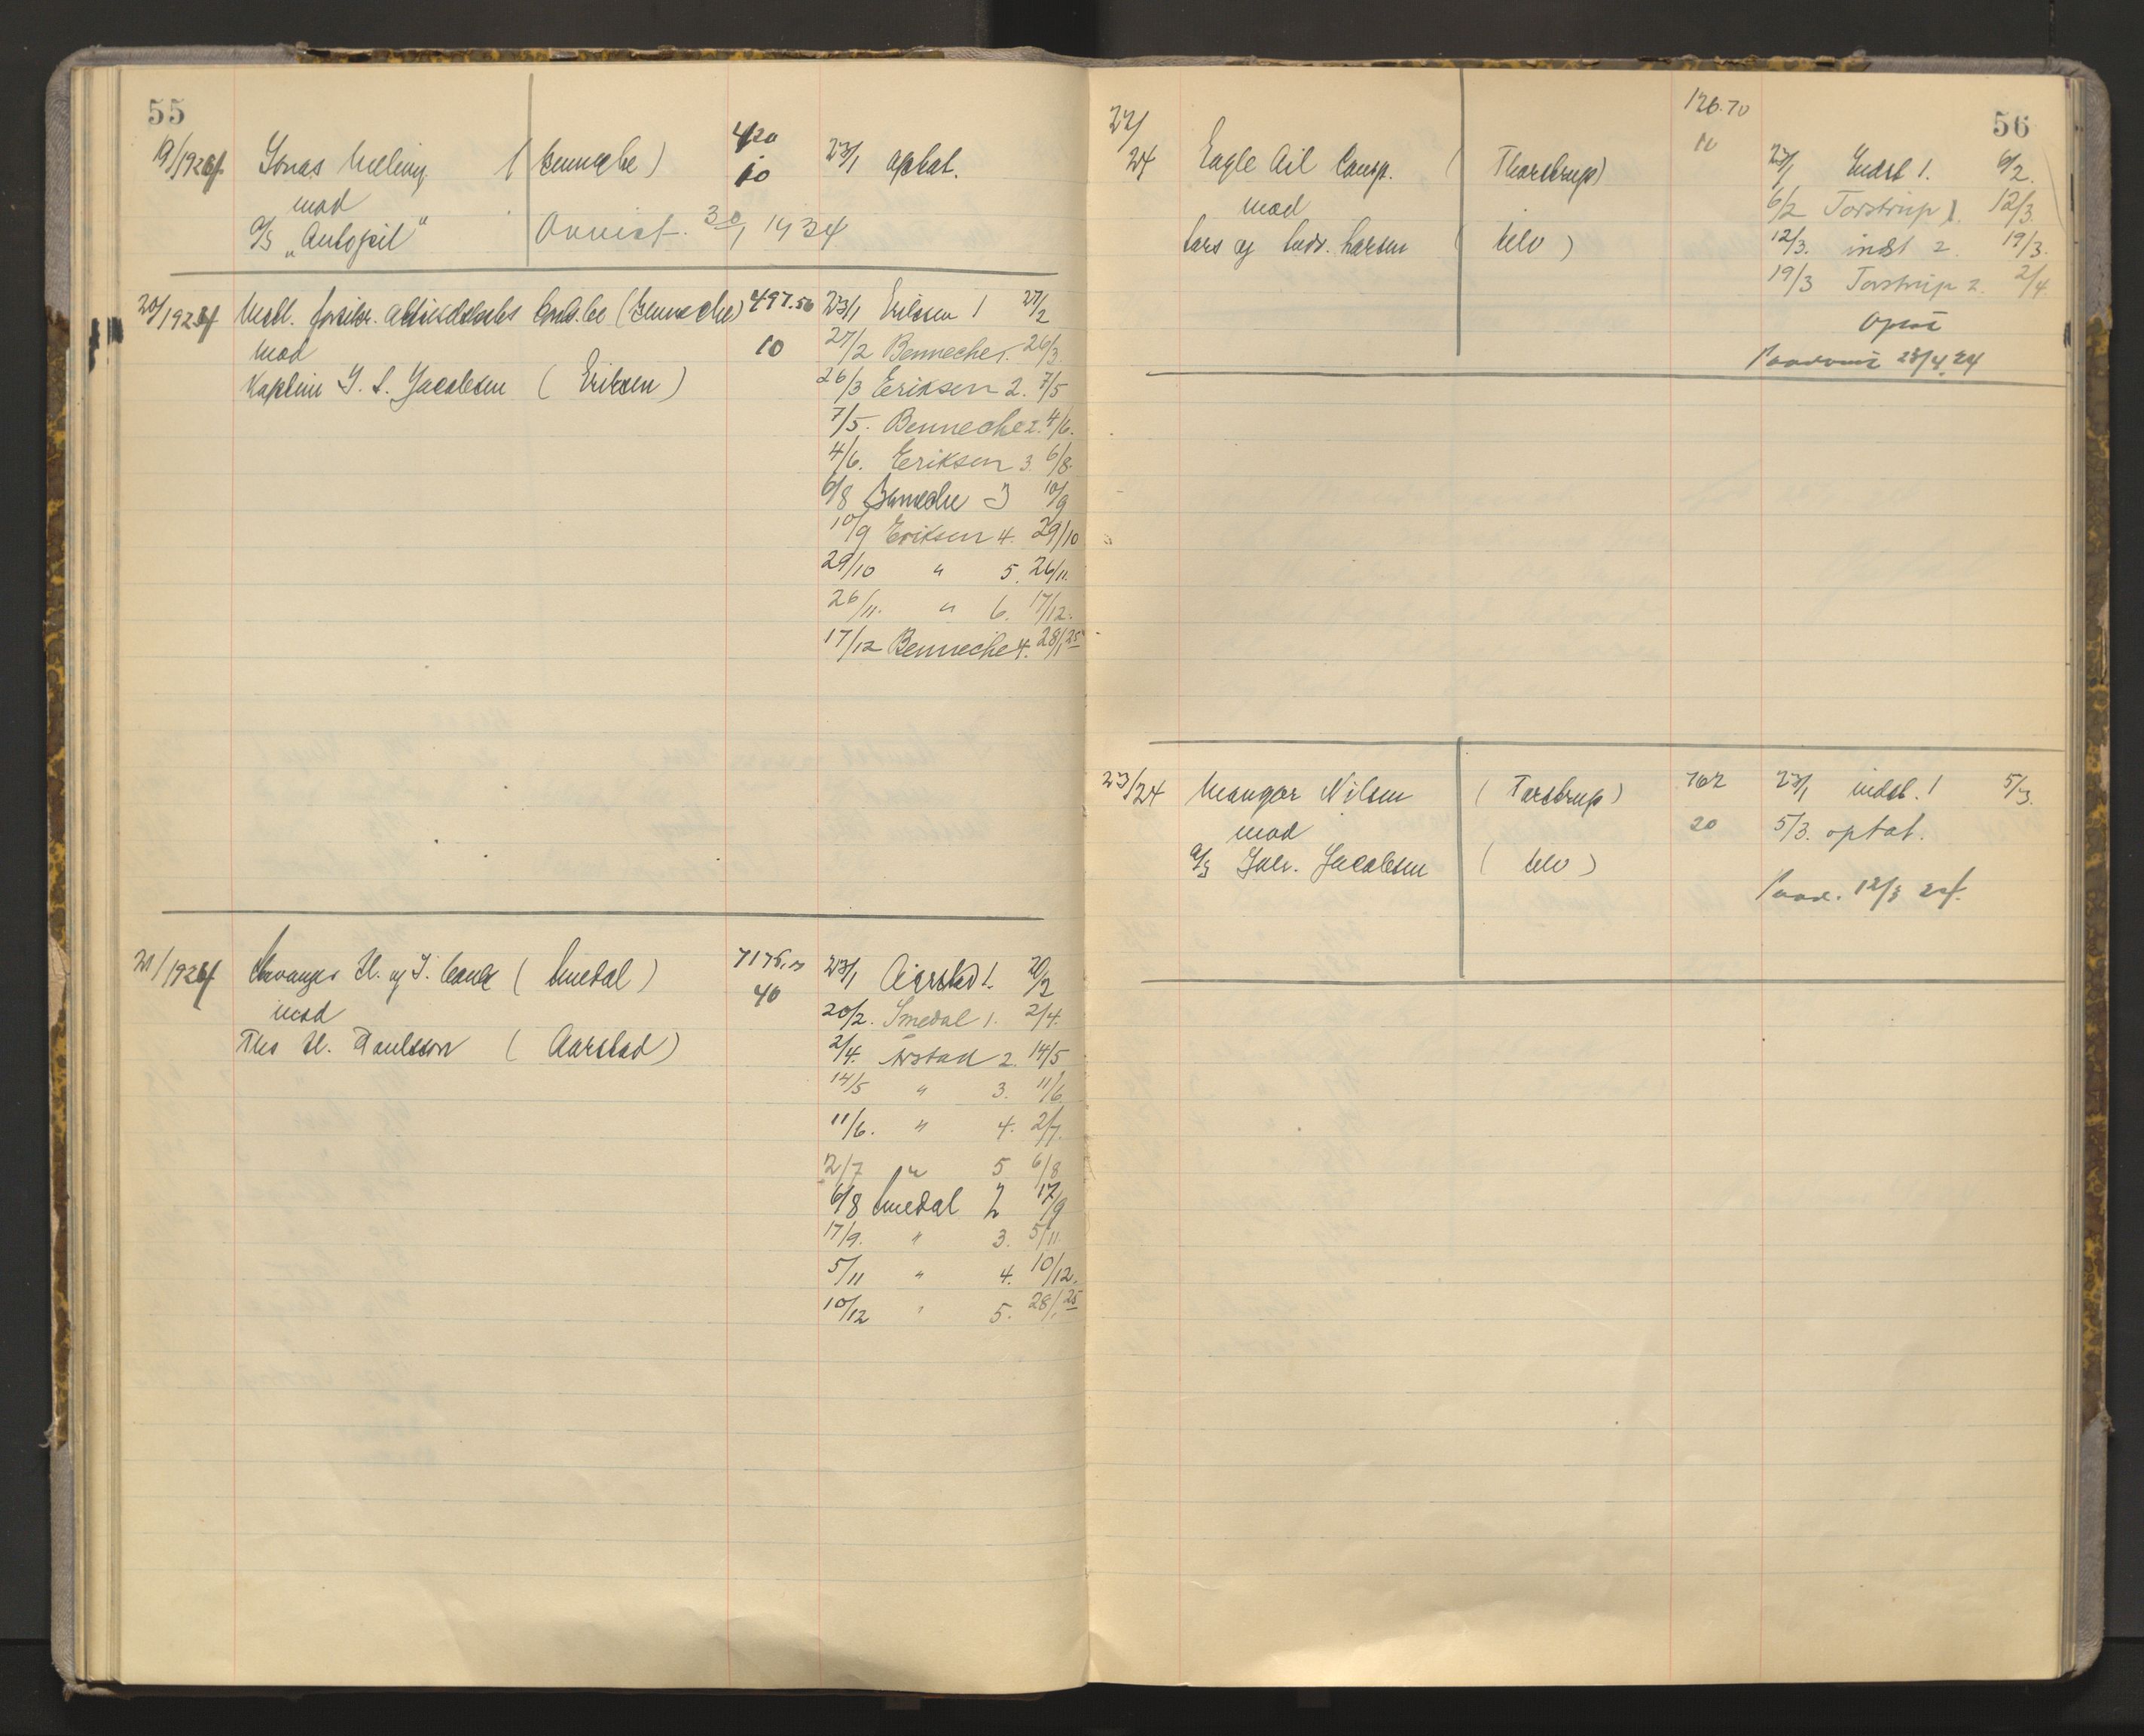 55
19/1924 Jonas Meling ( Benneche ) 420 23/1 optat.
mod 10
A/S "Autopil" Avvist. 30/1 1934
20/1924 ( Benneche ) 497.50 23/1 Eriksen 1 27/2
mod 10 27/2 Benneche 1. 26/3.
Kaptein J. S. Jacobsen ( Eriksen ) 26/3 Eriksen 2. 7/5
7/5. Benneche 2. 4/6.
4/6. Eriksen 3. 6/8.
6/8 Benneche 3 10/9
10/9 Eriksen 4. 29/10
29/10 " 5. 26/11.
26/11. " 6. 17/12.
17/12 Benneche 4. 28/1 25
21/1924 Stavanger H. og I. bank ( Smedal ) 23/1 Aarstad 1. 20/2
mod 40 20/2. Smedal 1. 2/4.
Ths H. Paulsson ( Aarstad ) 2/4. Arstad 2. 14/5
14/5 " 3. 11/6
11/6. " 4. 2/7.
2/7 " 5 6/8
6/8 Smedal 2 17/9
17/9. " 3. 5/11.
5/11 " 4. 10/12.
10/12 " 5. 28/1 25
56
22/ 126.70
24 Eagle Oil Comp. ( Thorstrup ) 10 23/1 Indst 1. 6/2.
mod 6/2 Torstrup 1. 12/3.
Lars og Ludv. Larsen ( selv ) 12/3. indst 2. 19/3.
19/3 Torstrup 2. 2/4.
Optat
28/4 24
23/24 Mangor Nilsen ( Torstrup ) 702 23/1 indst. 1 5/3.
mod 20 5/3. optat.
A/S Jacobsen ( selv )
12/3 24.